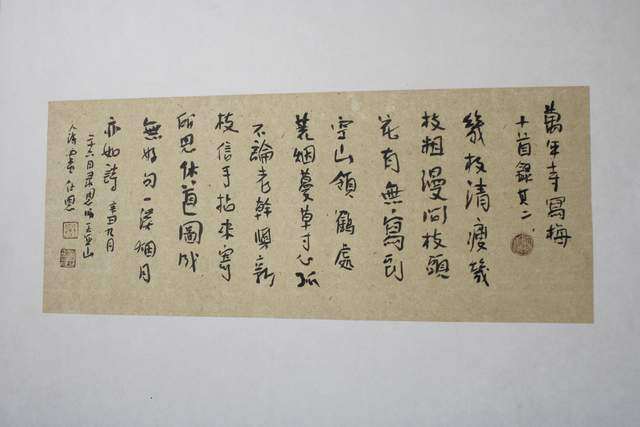 萬年寺寫梅
十首錄其二
幾枝清瘦幾
枝粗漫問枝頭
花有無寫到
空山領鶴處
荒烟蔓草寸心孤
不論老幹與新
枝信手拈來寫
所思休道圖成
無好句一烟月
亦如詩 辛丑九月
六日录恩师王亚山
仕恩